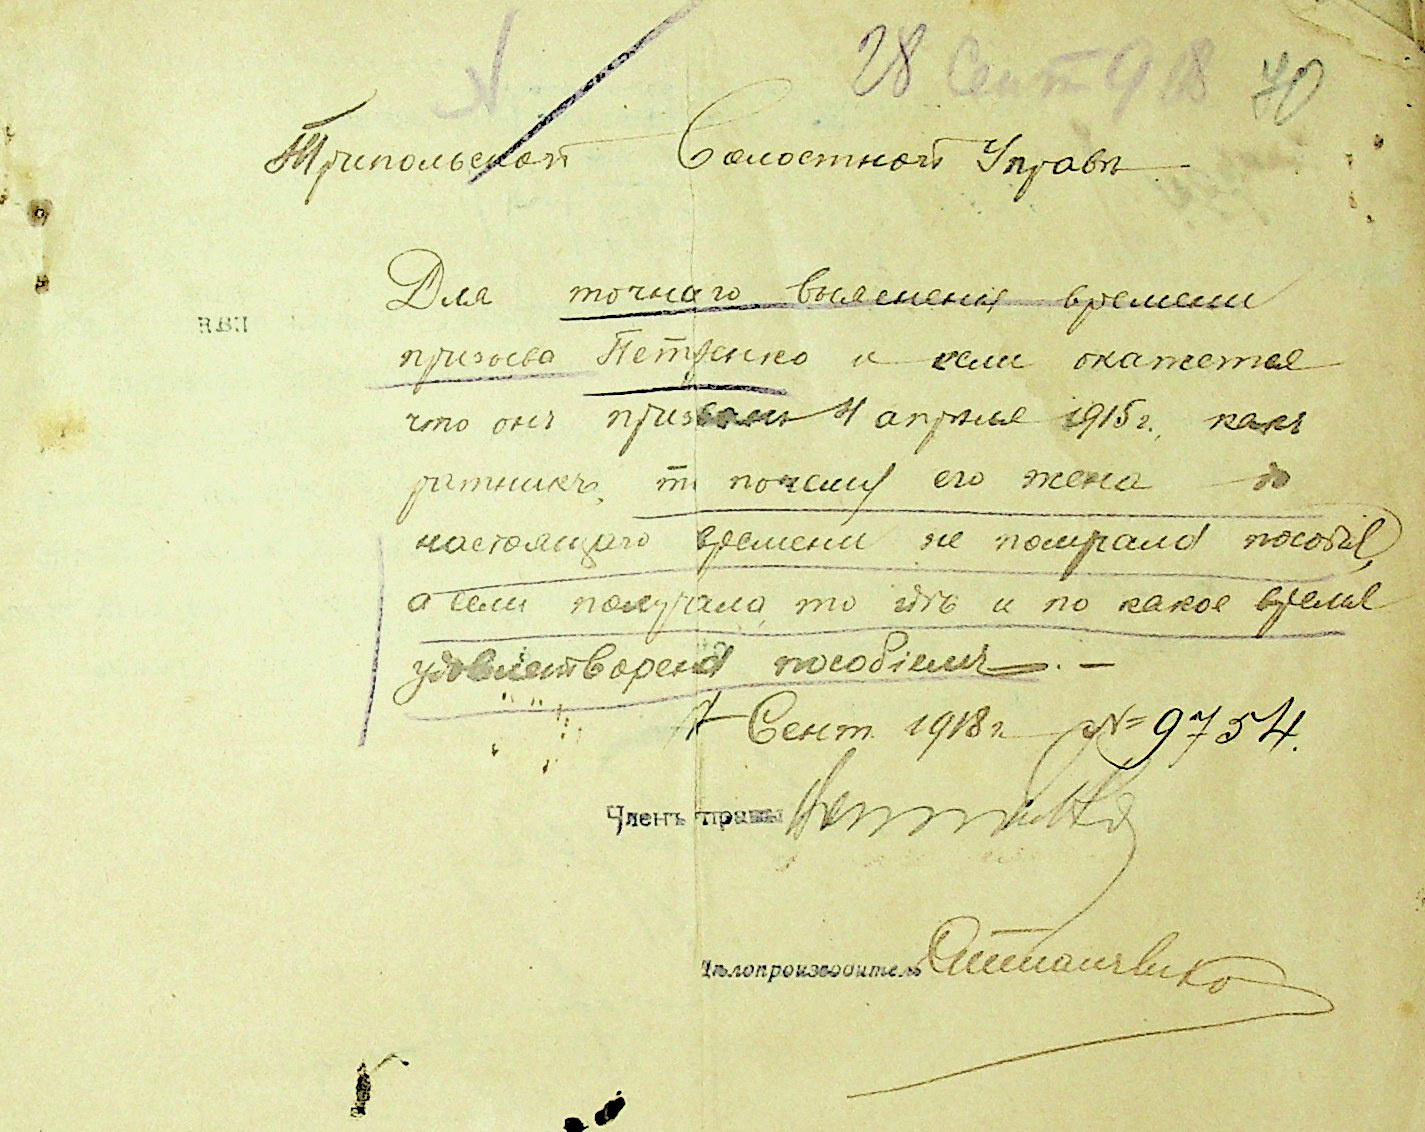 28 Сент 918 70
Трипольской Волостной Управѣ
Для точнаго выясненія времени
призыва Петренко и если окажется
что онъ призванъ 4 апрѣля 1915 г., какъ
ратникъ, то почему его жена до
настоящаго времени не получала пособія,
а если получала, то гдѣ и по какое время
удовлетворена пособіемъ. —
Сент. 1918 г. № 9754.
Членъ правы
Дѣлопроизводитель